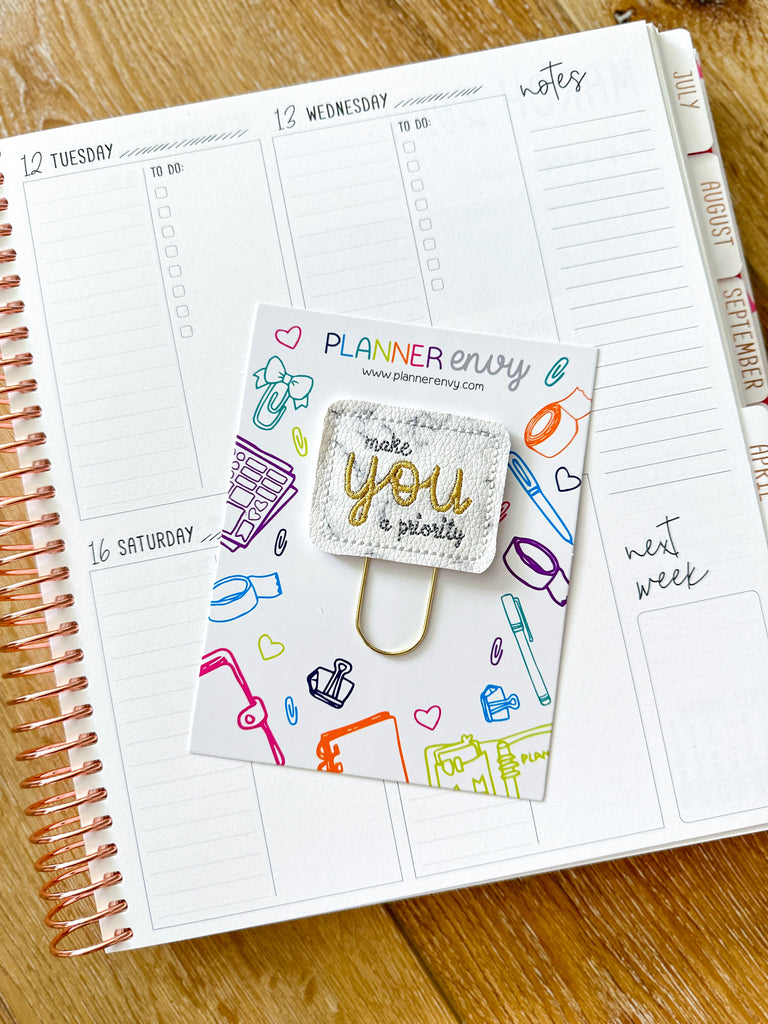 12 TUESDAY
TO DO:
13 WEDNESDAY
TO DO:
notes
JULY
AUGUST
SEPTEMBER
APRIL
PLANNER envy
www.plannerenvy.com
make
you
a priority
16 SATURDAY
next
week
PLAN